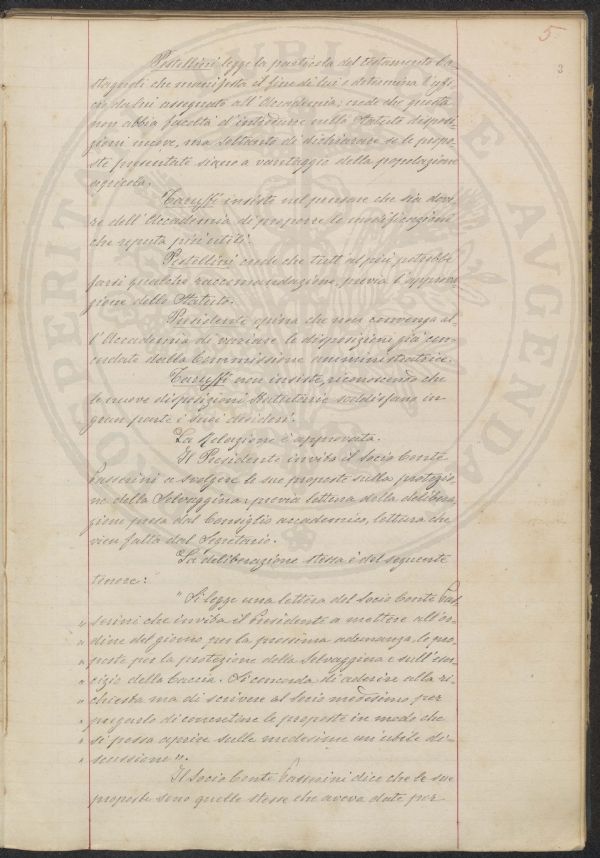 5
3
Pestellini legge la particola del testamento Ca-
stagnoli che manifesta il fine di lui e determina l'uffi-
cio da lui assegnato all'Accademia; crede che questa
non abbia facoltà d'introdurre nello Statuto disposi-
zioni nuove, ma soltanto di dichiarare se le propo-
ste presentate siano a vantaggio della popolazione
agricola.
Caruffi insiste nel pensare che sia dove-
re dell'Accademia di proporre le modificazioni
che reputa più utili.
Pestellini crede che tutt'al più potrebbe
farsi qualche raccomandazione, previa l'approva-
zione dello Statuto.
Presidente opina che non convenga al-
l'Accademia di variare le disposizioni già con-
cordate dalla Commissione amministratrice.
Caruffi non insiste, riconoscendo che
le nuove disposizioni Statutarie soddisfano in
gran parte i suoi desideri.
La Relazione è approvata.
Il Presidente invita il Socio Conte
Passerini a svolgere le sue proposte sulla protezio-
ne della Selvaggina, previa lettura della delibera-
zione presa dal Consiglio accademico, lettura che
vien fatta dal Secretario.
La deliberazione stessa è del seguente
tenore:
"Si legge una lettera del Socio Conte Pas-
" serini che invita il Presidente a mettere all'or-
" dine del giorno per la prossima adunanza le pro-
" poste per la protezione della Selvaggina e sull'eser-
" cizio della Caccia. Si concorda di aderire alla ri-
" chiesta ma di scrivere al Socio medesimo per
" pregarlo di concretare le proposte in modo che
" si possa aprire sulle medesime un'utile di-
" scussione".
Il Socio Conte Passerini dice che le sue
proposte sono quelle stesse che aveva date per
PROSPERITATI PUBLICAE AUGENDAE